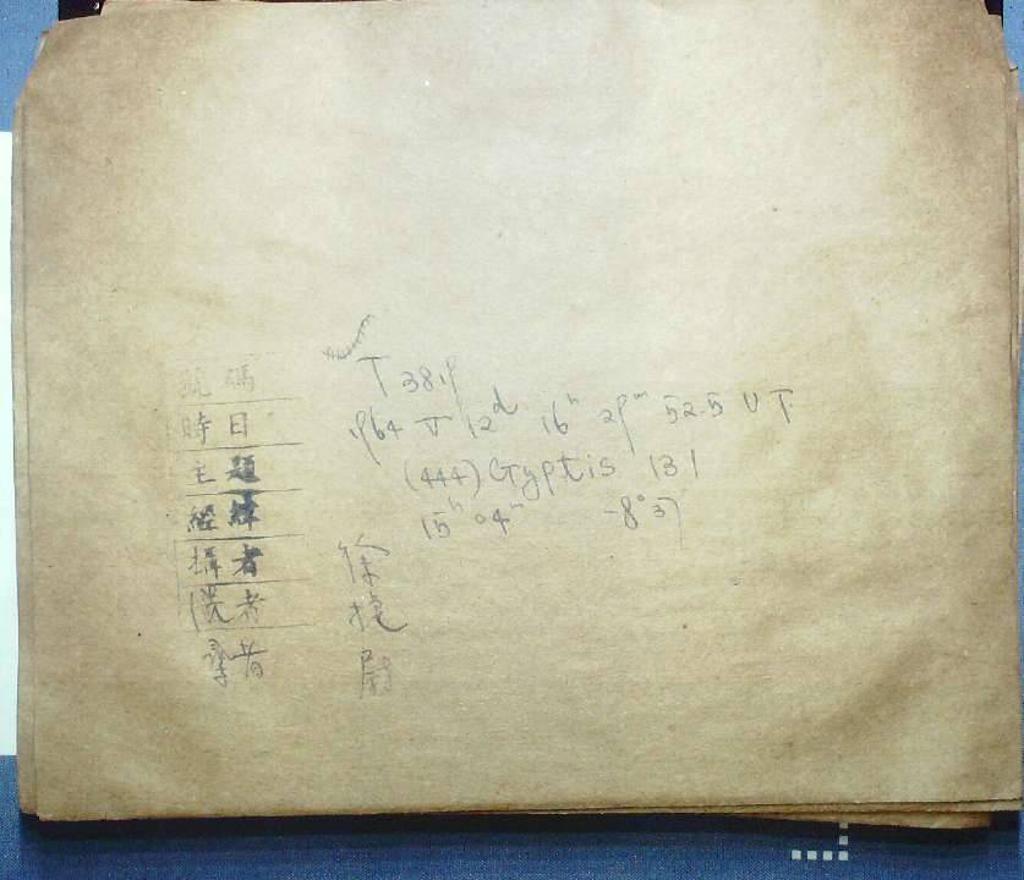 號碼 T 3819
時目 1964 V 12ᵈ 16ʰ 29ᵐ 52.5 U T
主題 (444) Gyptis 131
經緯 15ʰ 04ᵐ -8°37
攝者 徐
洗者
尋者